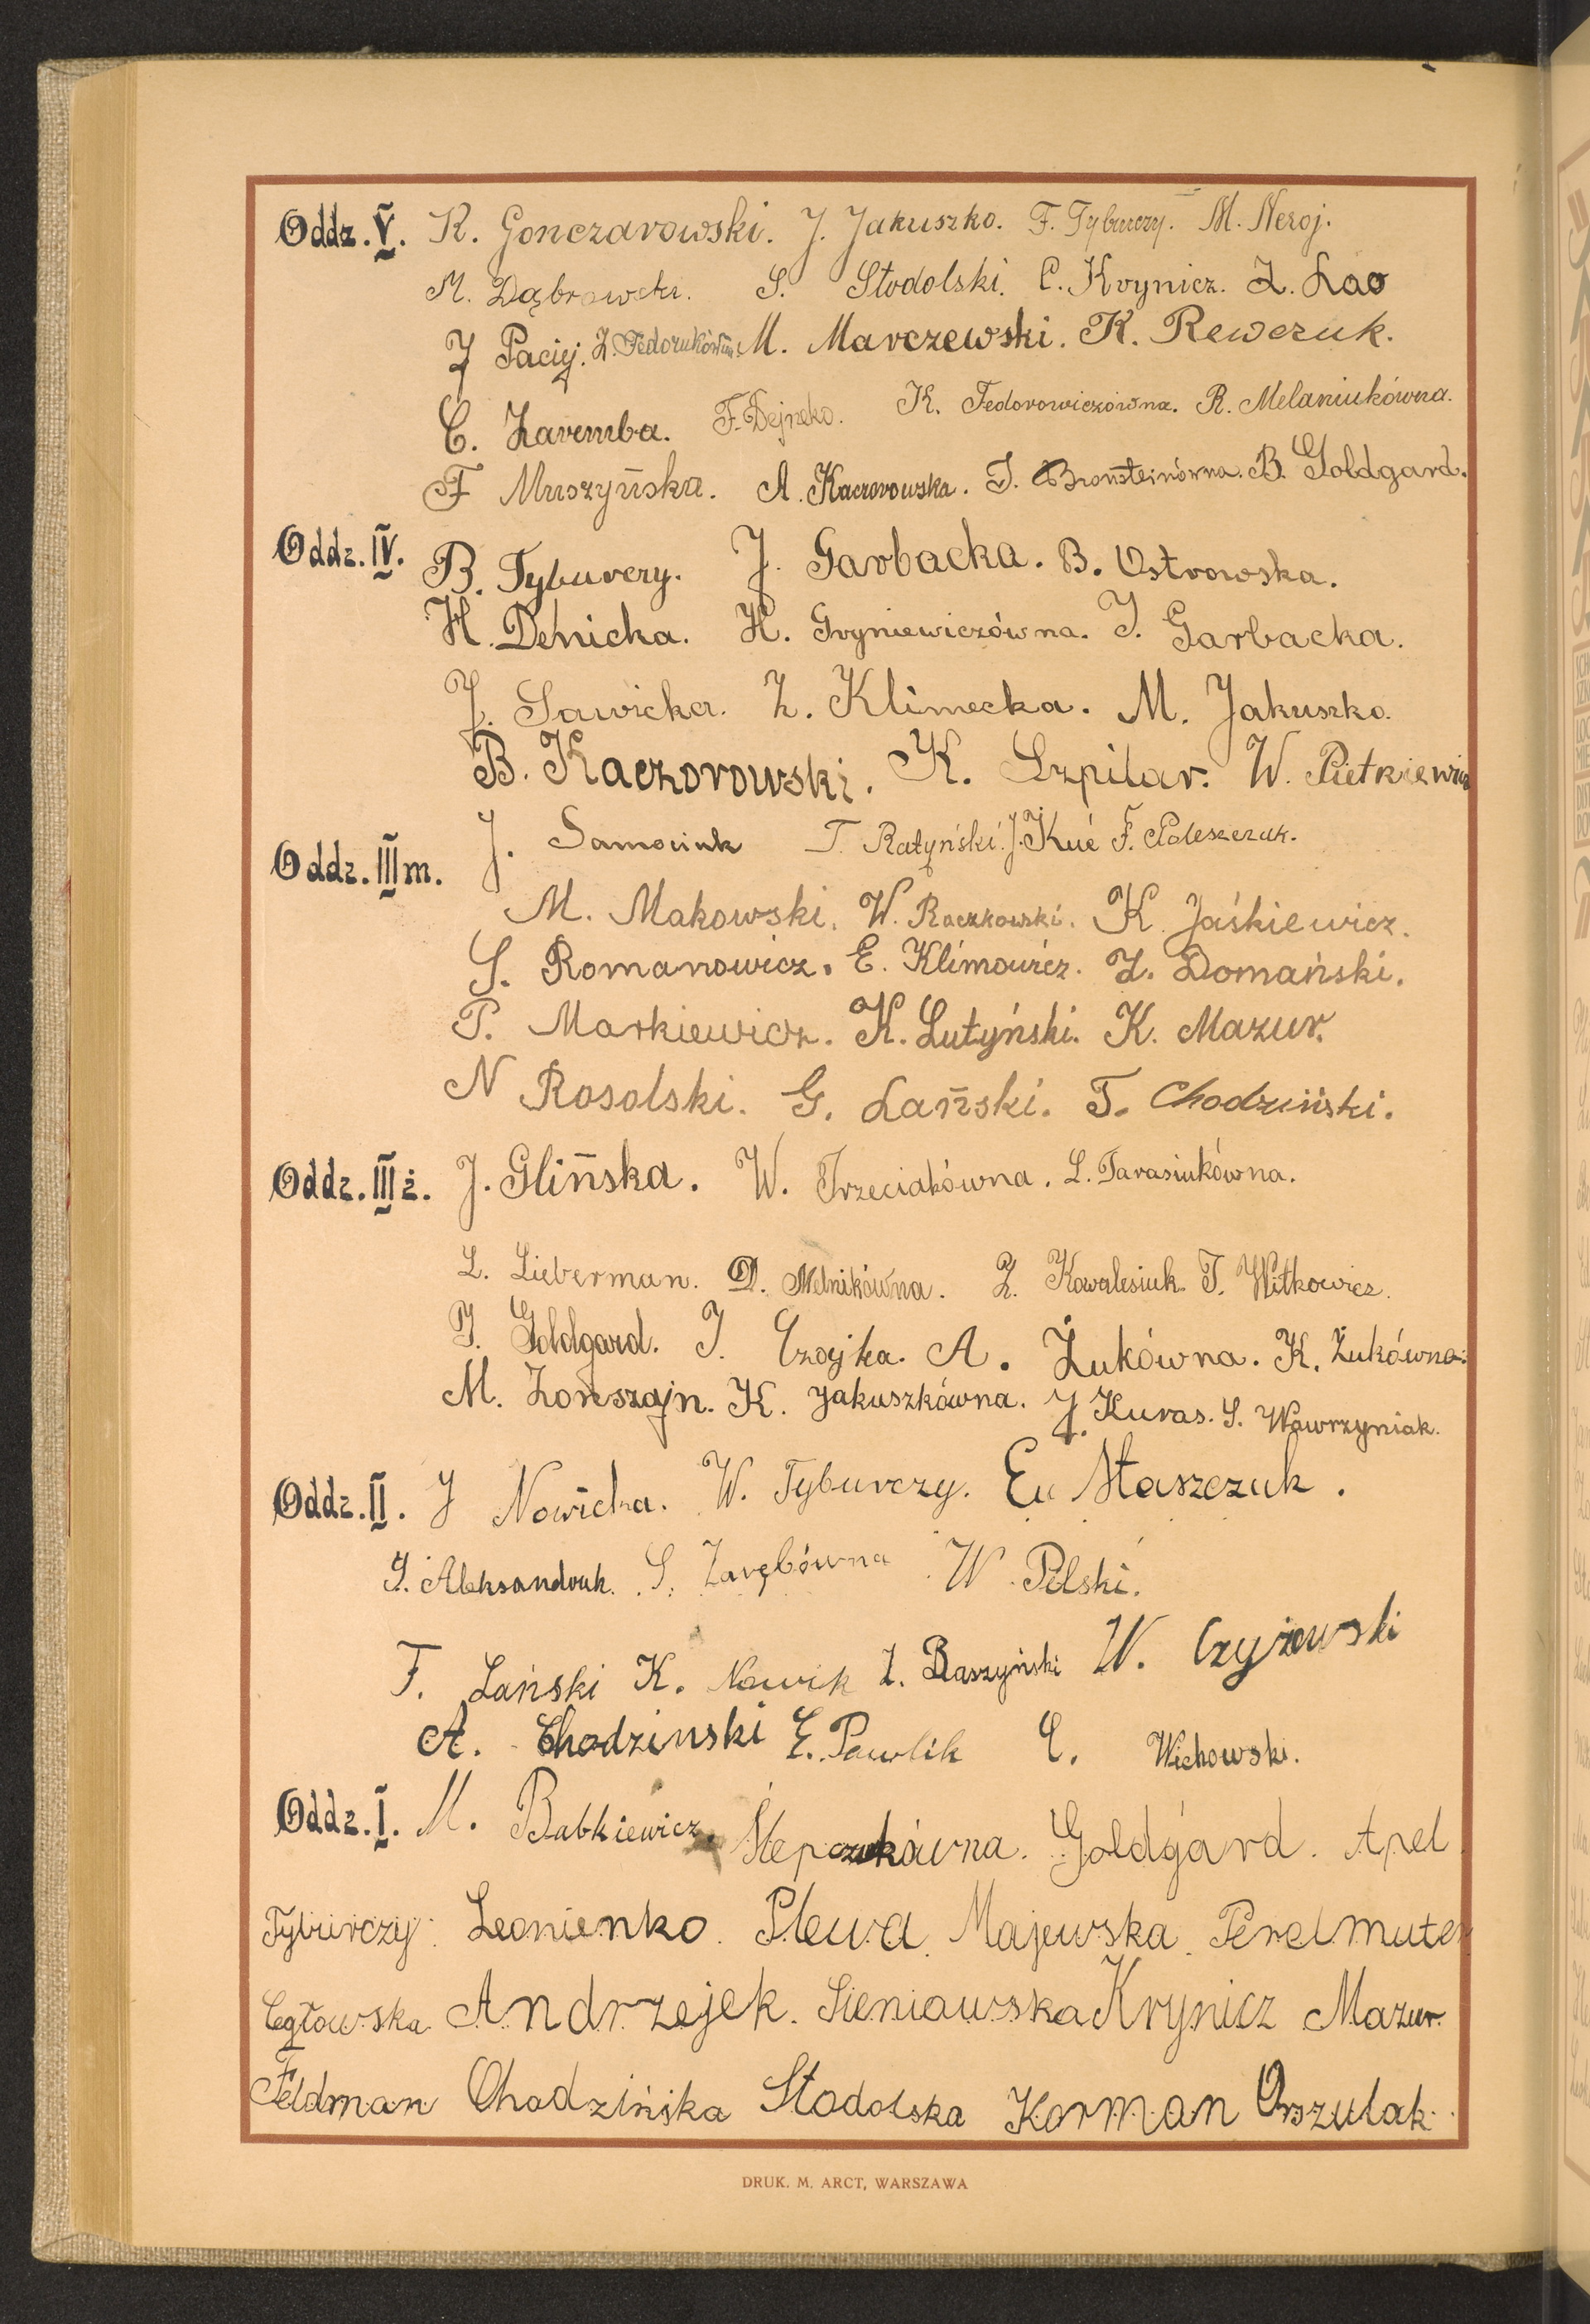 Oddz. V. K. Gonczarowski. J. Jakuszko. F. Tyburczy. M. Neroj.
M. Dąbrowska. S. Stodolski. C. Krynicz. Z. Lao
J Paciej. Z. Fedorukówna. M. Marczewski. K. Rewczuk.
C. Zaremba. F. Dejneko. K. Fedorowiczówna. R. Melaniukówna.
F Muszyńska. A. Kaczorowska. I. Bronsteinówna. B. Goldgard.
Oddz. IV. B. Tyburczy. J. Garbacka. B. Ostrowska.
H. Denicka. H. Gryniewiczówna. I. Garbacka.
J. Sawicka. Z. Klimecka. M. Jakuszko.
B. Kaczorowski. K. Szpilar. W. Pietkiewicz
Oddz. III m. J. Samociuk T. Ratyński. J. Kuć F. Poleszczuk.
M. Makowski. W. Raczkowski. K. Jaśkiewicz.
S. Romanowicz. E. Klimowicz. Z. Domański.
P. Markiewicz. K. Lutyński. K. Mazur.
N Rosolski. G. Lański. T. Chodziński.
Oddz. III ż. J. Glińska. W. Trzeciakówna. L. Tarasiukówna.
L. Lieberman. D. Melnikówna. Z. Kowalesiuk. T. Witkowicz.
I. Goldgard. J. Czojka. A. Żukówna. K. Żukówna.
M. Zonszajn. K. Jakuszkówna. J. Kuras. S. Wawrzyniak.
Oddz. II. J Nowicka. W. Tyburczy. Eu Staszczuk.
I. Aleksandruk. S. Zarębówna W. Pilski.
F. Lański K. Nowik Z. Baszyński W. Czyżewski
A. Chodzinski E. Pawlik C. Wichowski.
Oddz. I. M. Babkiewicz. Stepczukówna. Goldgard. Apel
Tyburczy. Leonienko. Plewa. Majewska. Perelmuter
Cegłowska. Andrzejek. Sieniawska Krynicz Mazur.
Feldman Chodzińska Stodolska Korman Orszulak.
DRUK. M. ARCT, WARSZAWA